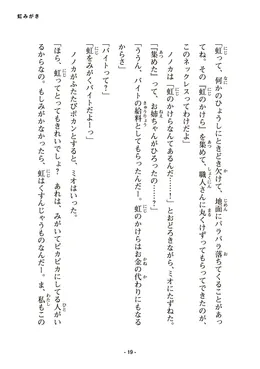 虹みがき
「虹って、何かのひょうしにときどき欠けて、地面にバラバラ落ちてくることがあっ
てね。その『虹のかけら』を集めて、職人さんに丸くけずってもらってできたのが、
このネックレスってわけだよ」
ノノカは『虹のかけらなんてあるんだ……！』とおどろきながら、ミオにたずねた。
「『集めた』って、お姉ちゃんがひろったの……？」
「ううん。バイトの給料としてもらったんだー。虹のかけらはお金の代わりにもなる
からさ」
「バイトって？」
「虹をみがくバイトだよーっ」
ノノカがふたたびポカンとすると、ミオはいった。
「ほら、虹ってとってもきれいでしょ？　あれは、みがいてピカピカにしてる人がい
るからなの。もしみがかなかったら、虹はくすんじゃうものなんだー。ま、私もこの
- 19 -